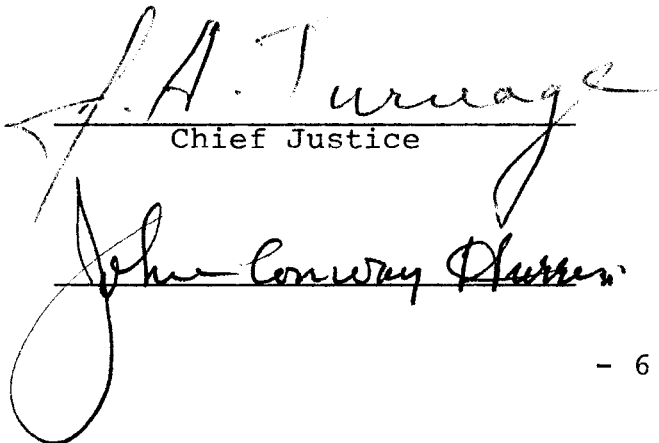 J. A. Turnage
Chief Justice
John Conway Harrison
- 6